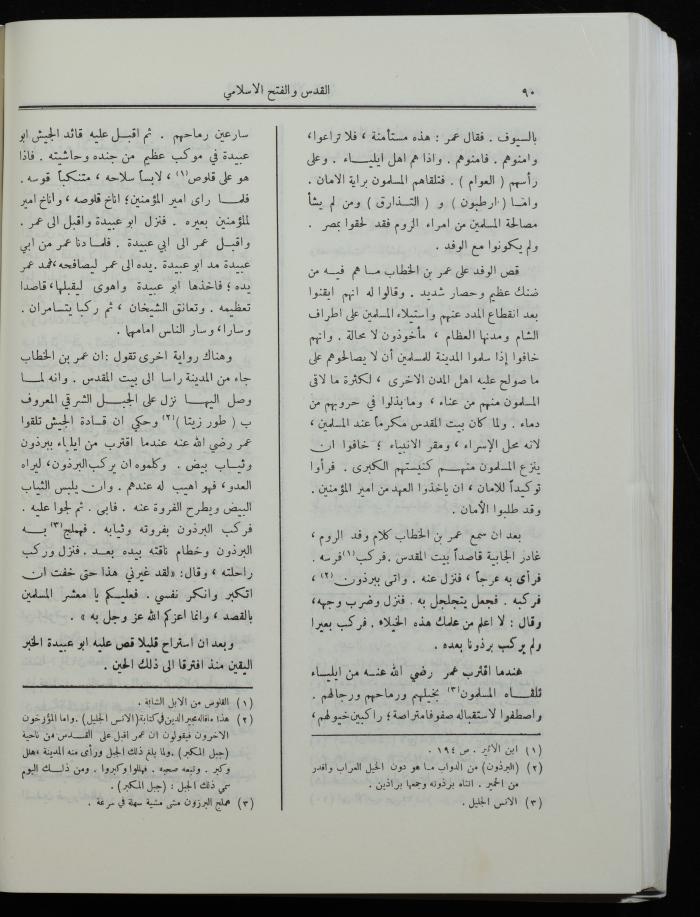 ٩٠
القدس والفتح الاسلامي
بالسيوف . فقال عمر : هذه مستأمنة ، فلا تراعوا،
وامنوهم . فامنوهم . واذا هم اهل ايليـاء . وعلى
رأسهم ( العوام ) . فتلقاهم المسلمون براية الامان .
وامـا ( ارطبون ) و ( التـذارق ) ومن لم يشأ
مصالحة المسلمين من امراء الروم فقد لحقوا بمصر .
ولم يكونوا مع الوفد .
قص الوفد على عمر بن الخطاب مـا هم فيـه من
ضنك عظيم وحصار شديد . وقالوا له انهم ايقنوا
بعد انقطاع المدد عنهم واستيلاء المسلمين على اطراف
الشام ومدنها العظام ، مأخوذون لا محالة . وانهم
خافوا إذا سلموا المدينة للمسلمين أن لا يصالحوهم على
ما صولح عليه اهل المدن الاخرى ، لكثرة ما لاقى
المسلمون منهم من عناء ، وما بذلوا في حروبهم من
دماء . ولما كان بيت المقدس مكرماً عند المسلمين ،
لانه محل الإسراء ، ومقر الانبياء ؛ خافوا ان
ينزع المسلمون منهـم كنيستهم الكبرى . فرأوا
توكيداً للامان ، ان ياخذوا العهد من امير المؤمنين .
وقد طلبوا الأمان .
بعد ان سمع عمر بن الخطاب كلام وفد الروم ،
غادر الجابية قاصداً بيت المقدس . فركب (١) فرسه .
فرأى به عرجاً ، فنزل عنه . واتى ببرذون (٢) ،
فركبه . فجعل يتجلجل به . فنزل وضرب وجهه،
وقال : لا اعلم من علمك هذه الخيلاء . فركب بعيرا
ولم يركب برذونا بعده .
عندما اقترب عمر رضي الله عنـه من ايليـاء
تلقـاه المسلمون (٣) بخيلهم ورماحهم ورجالهم .
واصطفوا لاستقباله صفوفا متراصة؛ راكبين خيولهم،
(١) ابن الأثير . ص ١٩٤ .
(٢) (البرذون) من الدواب مـا هو دون الخيل العراب واقدر
من الحمير . انثاه برذونه وجمعها براذين .
(٣) الانس الجليل .
سارعين رماحهم . ثم اقبـل عليه قائد الجيش ابو
عبيدة في موكب عظيم من جنده وحاشيته . فاذا
هو على قلوص (١) ، لابساً سلاحه ، متنكباً قوسه .
فلمـا راى امير المؤمنين؛ اناخ قلوصه ، واناخ امير
لمؤمنين بعيره . فنزل ابو عبيدة واقبل الى عمر .
واقبـل عمر الى ابي عبيدة . فلمـا دنا عمر من ابي
عبيدة مد ابو عبيدة . يده الى عمر ليصافحه، فمد عمر
يده ؛ فاخذها ابو عبيدة واهوى ليقبلها، قاصدا
تعظيمه . وتعانق الشيخان ، ثم ركبا يتسامران .
وسارا، وسار الناس امامهما .
وهناك رواية اخرى تقول : ان عمر بن الخطاب
جاء من المدينة راسا الى بيت المقدس . وانه لمـا
وصل اليهـا نزل على الجبـل الشرقي المعروف
ب ( طور زيتا ) (٢) وحكي ان قـادة الجيش تلقوا
عمر رضي الله عنه عندما اقترب من ايلياء ببرذون
وثيـاب بيض . وكلموه ان يركب البرذون، ليراه
العدو، فهو اهيب له عندهم . وان يلبس الثياب
البيض ويطرح الفروة عنه . فابى . ثم لجوا عليه .
فركب البرذون بفروته وثيابه . فهملج (٣) بـه
البرذون وخطام ناقته بيده بعـد . فنزل وركب
راحلته ، وقال: «لقد غيرني هذا حتى خفت ان
اتكبر وانكر نفسي . فعليكم يا معشر المسلمين
بالقصد ، وانما اعزكم الله عز وجل به » .
وبعد ان استراح قليلا قص عليه ابو عبيدة الخبر
اليقين منذ افترقا الى ذلك الحين .
(١) القلوص من الابل الشابة .
(٢) هذا ماقاله مجير الدين في كتابة (الانس الجليل) . واما المؤرخون
الاخرون فيقولون ان عمر اقبل على القـدس من ناحية
(جبل المكبر) . ولما بلغ ذلك الجبل ورأى منه المدينة «هلل
وكبر . وتبعه صحبه . فهللوا وكبروا . ومن ذلـك اليوم
سمي ذلك الجبل : (جبل المكبر) .
(٣) هملج البرذون مشى مشية سهلة في سرعة .